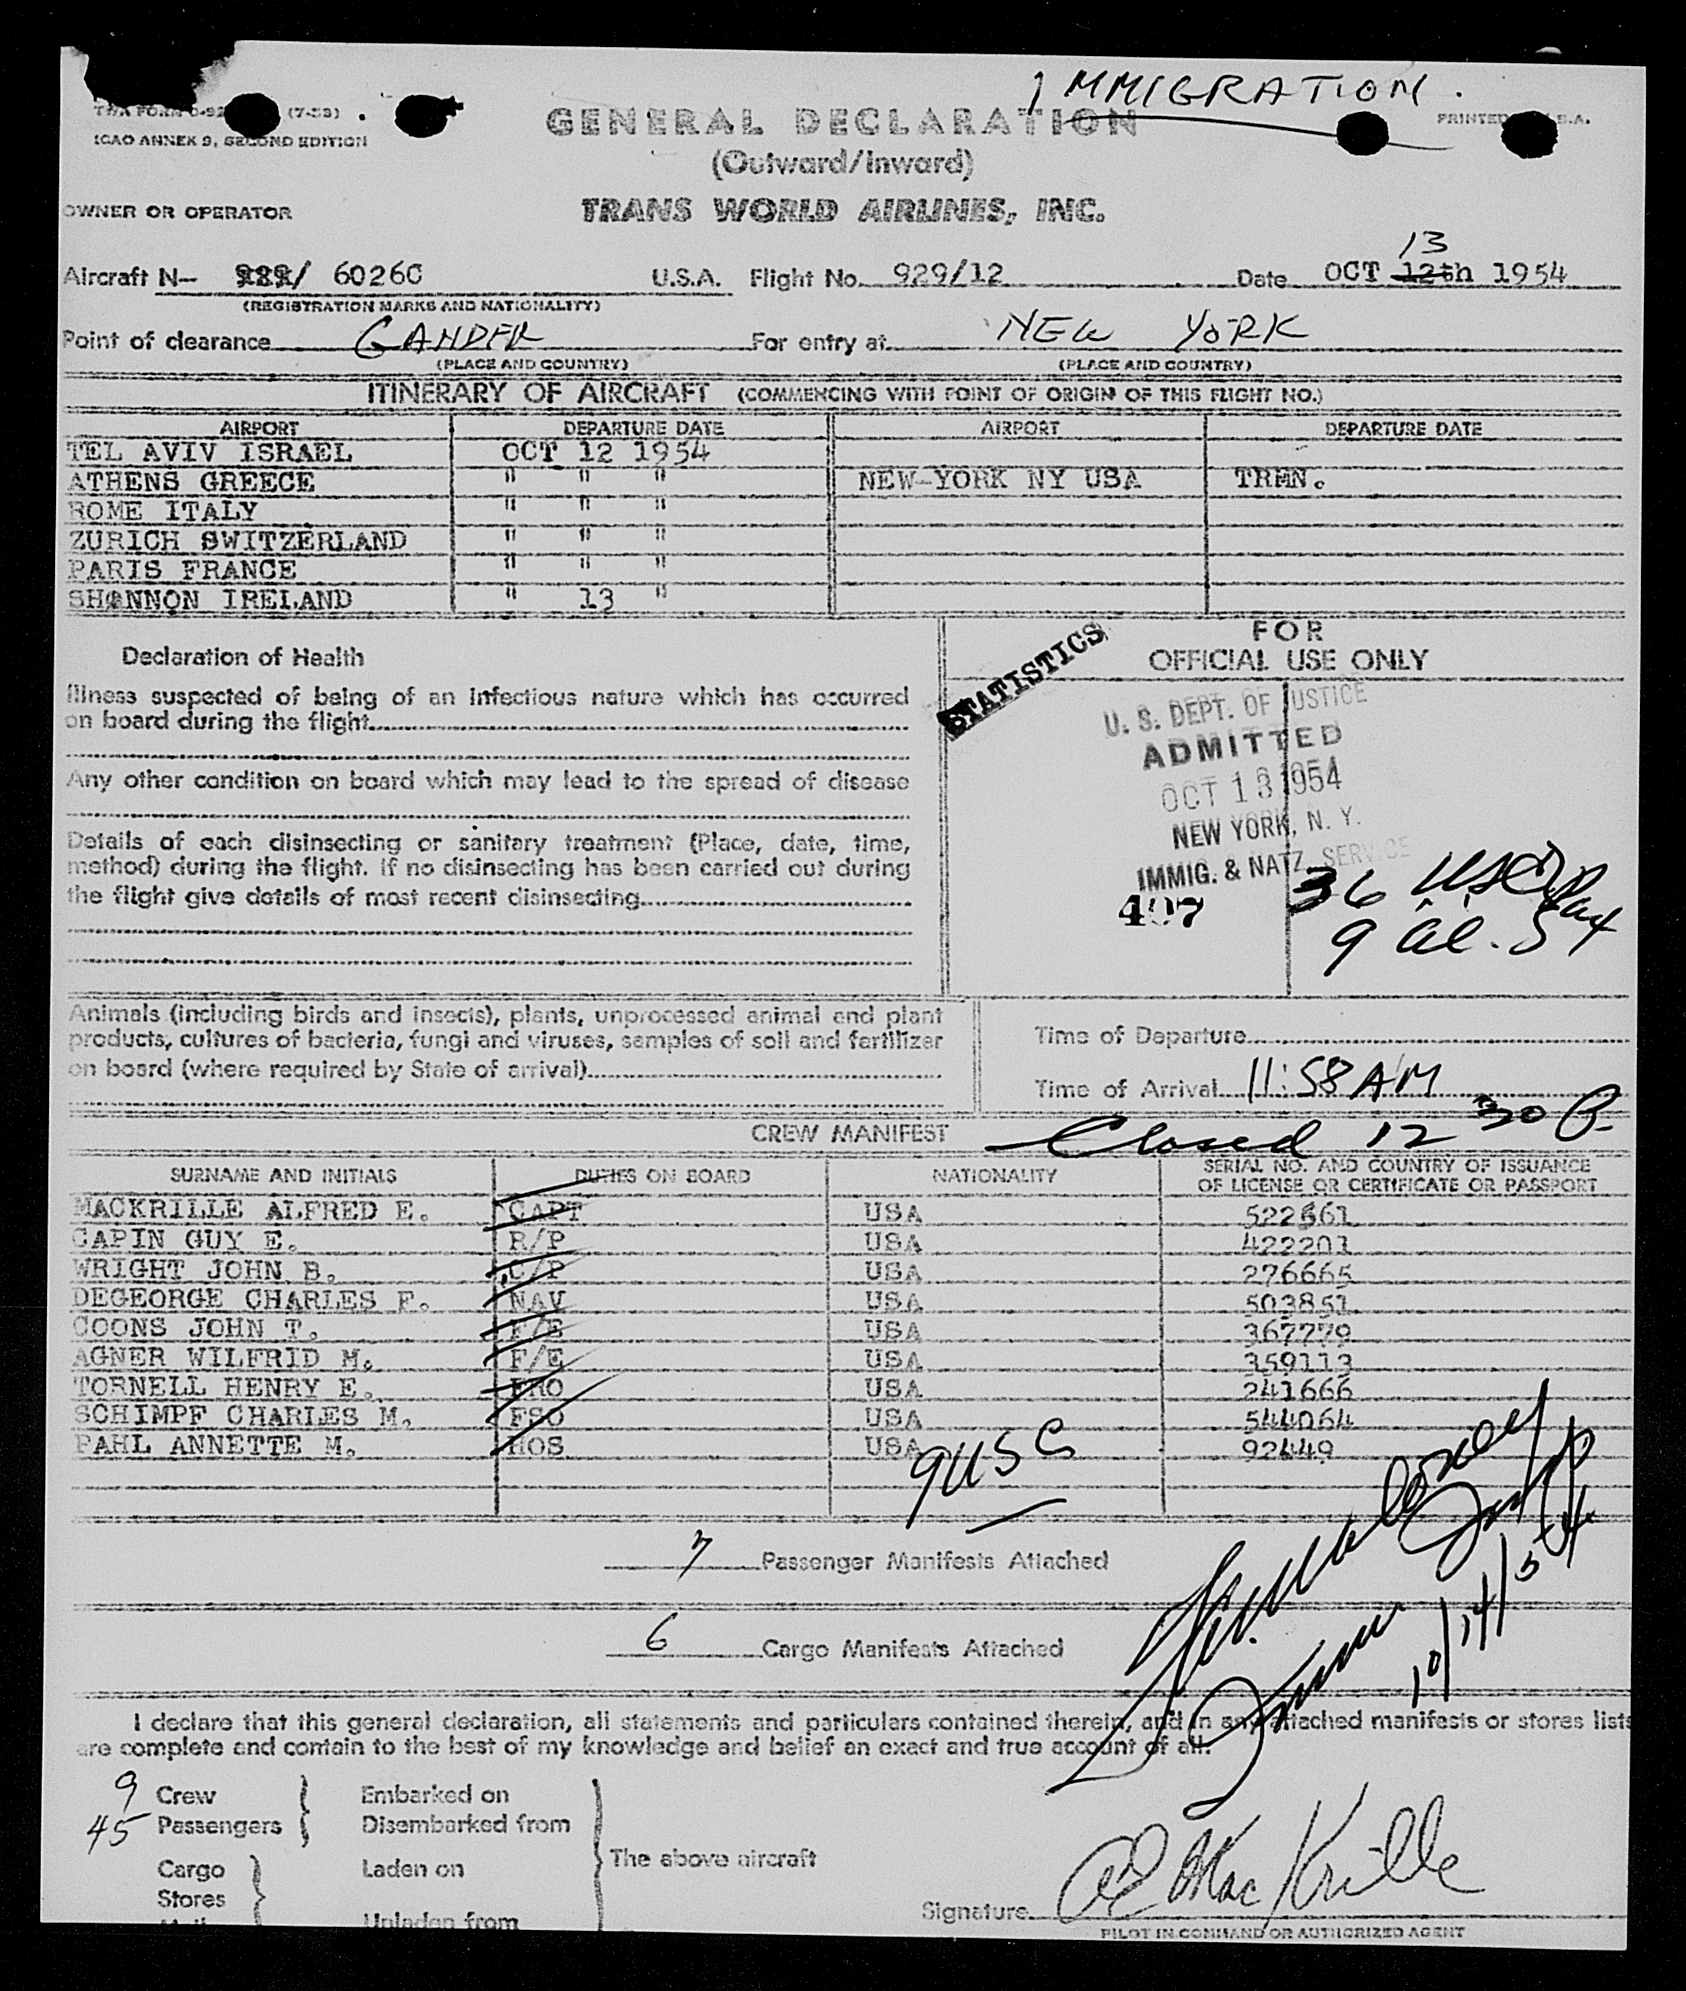 IMMIGRATION.
TWA FORM (7-53)
ICAO ANNEX 9, SECOND EDITION
GENERAL DECLARATION
PRINTED U.S.A.
(Outward/Inward)
OWNER OR OPERATOR
TRANS WORLD AIRLINES, INC.
13
Aircraft N- 929/ 6026C U.S.A. Flight No. 929/12 Date OCT 12th 1954
(REGISTRATION MARKS AND NATIONALITY)
Point of clearance GANDER For entry at NEW YORK
(PLACE AND COUNTRY) (PLACE AND COUNTRY)
ITINERARY OF AIRCRAFT (COMMENCING WITH POINT OF ORIGIN OF THIS FLIGHT NO.)
AIRPORT DEPARTURE DATE AIRPORT DEPARTURE DATE
TEL AVIV ISRAEL OCT 12 1954
ATHENS GREECE " " " NEW-YORK NY USA TRMN.
ROME ITALY " " "
ZURICH SWITZERLAND " " "
PARIS FRANCE " " "
SHANNON IRELAND " 13 "
FOR
OFFICIAL USE ONLY
STATISTICS
Declaration of Health
Illness suspected of being of an infectious nature which has occurred
on board during the flight
Any other condition on board which may lead to the spread of disease
Details of each disinsecting or sanitary treatment (Place, date, time,
method) during the flight. If no disinsecting has been carried out during
the flight give details of most recent disinsecting
U. S. DEPT. OF JUSTICE
ADMITTED
OCT 13 1954
NEW YORK, N. Y.
IMMIG. & NATZ. SERVICE
407
36 USC
9 al.
Animals (including birds and insects), plants, unprocessed animal and plant
products, cultures of bacteria, fungi and viruses, samples of soil and fertilizer
on board (where required by State of arrival)
Time of Departure
Time of Arrival 11:58 AM
Closed 12 30 P.
CREW MANIFEST
SURNAME AND INITIALS DUTIES ON BOARD NATIONALITY SERIAL NO. AND COUNTRY OF ISSUANCE
OF LICENSE OR CERTIFICATE OR PASSPORT
MACKRILLE ALFRED E. CAPT USA 522561
CAPIN GUY E. R/P USA 422201
WRIGHT JOHN B. C/P USA 276665
DEGEORGE CHARLES F. NAV USA 503851
COONS JOHN T. F/E USA 367779
AGNER WILFRID M. F/E USA 359113
TORNELL HENRY E. FRO USA 241666
SCHIMPF CHARLES M. FSO USA 544064
PAHL ANNETTE M. HOS USA 92449
9 USC
7 Passenger Manifests Attached
6 Cargo Manifests Attached
10/14/54
I declare that this general declaration, all statements and particulars contained therein, and in any attached manifests or stores lists
are complete and contain to the best of my knowledge and belief an exact and true account of all.
9 Crew Embarked on
45 Passengers Disembarked from
The above aircraft
Cargo Laden on
Stores
Mail Unladen from
Signature AE MacKrille
PILOT IN COMMAND OR AUTHORIZED AGENT